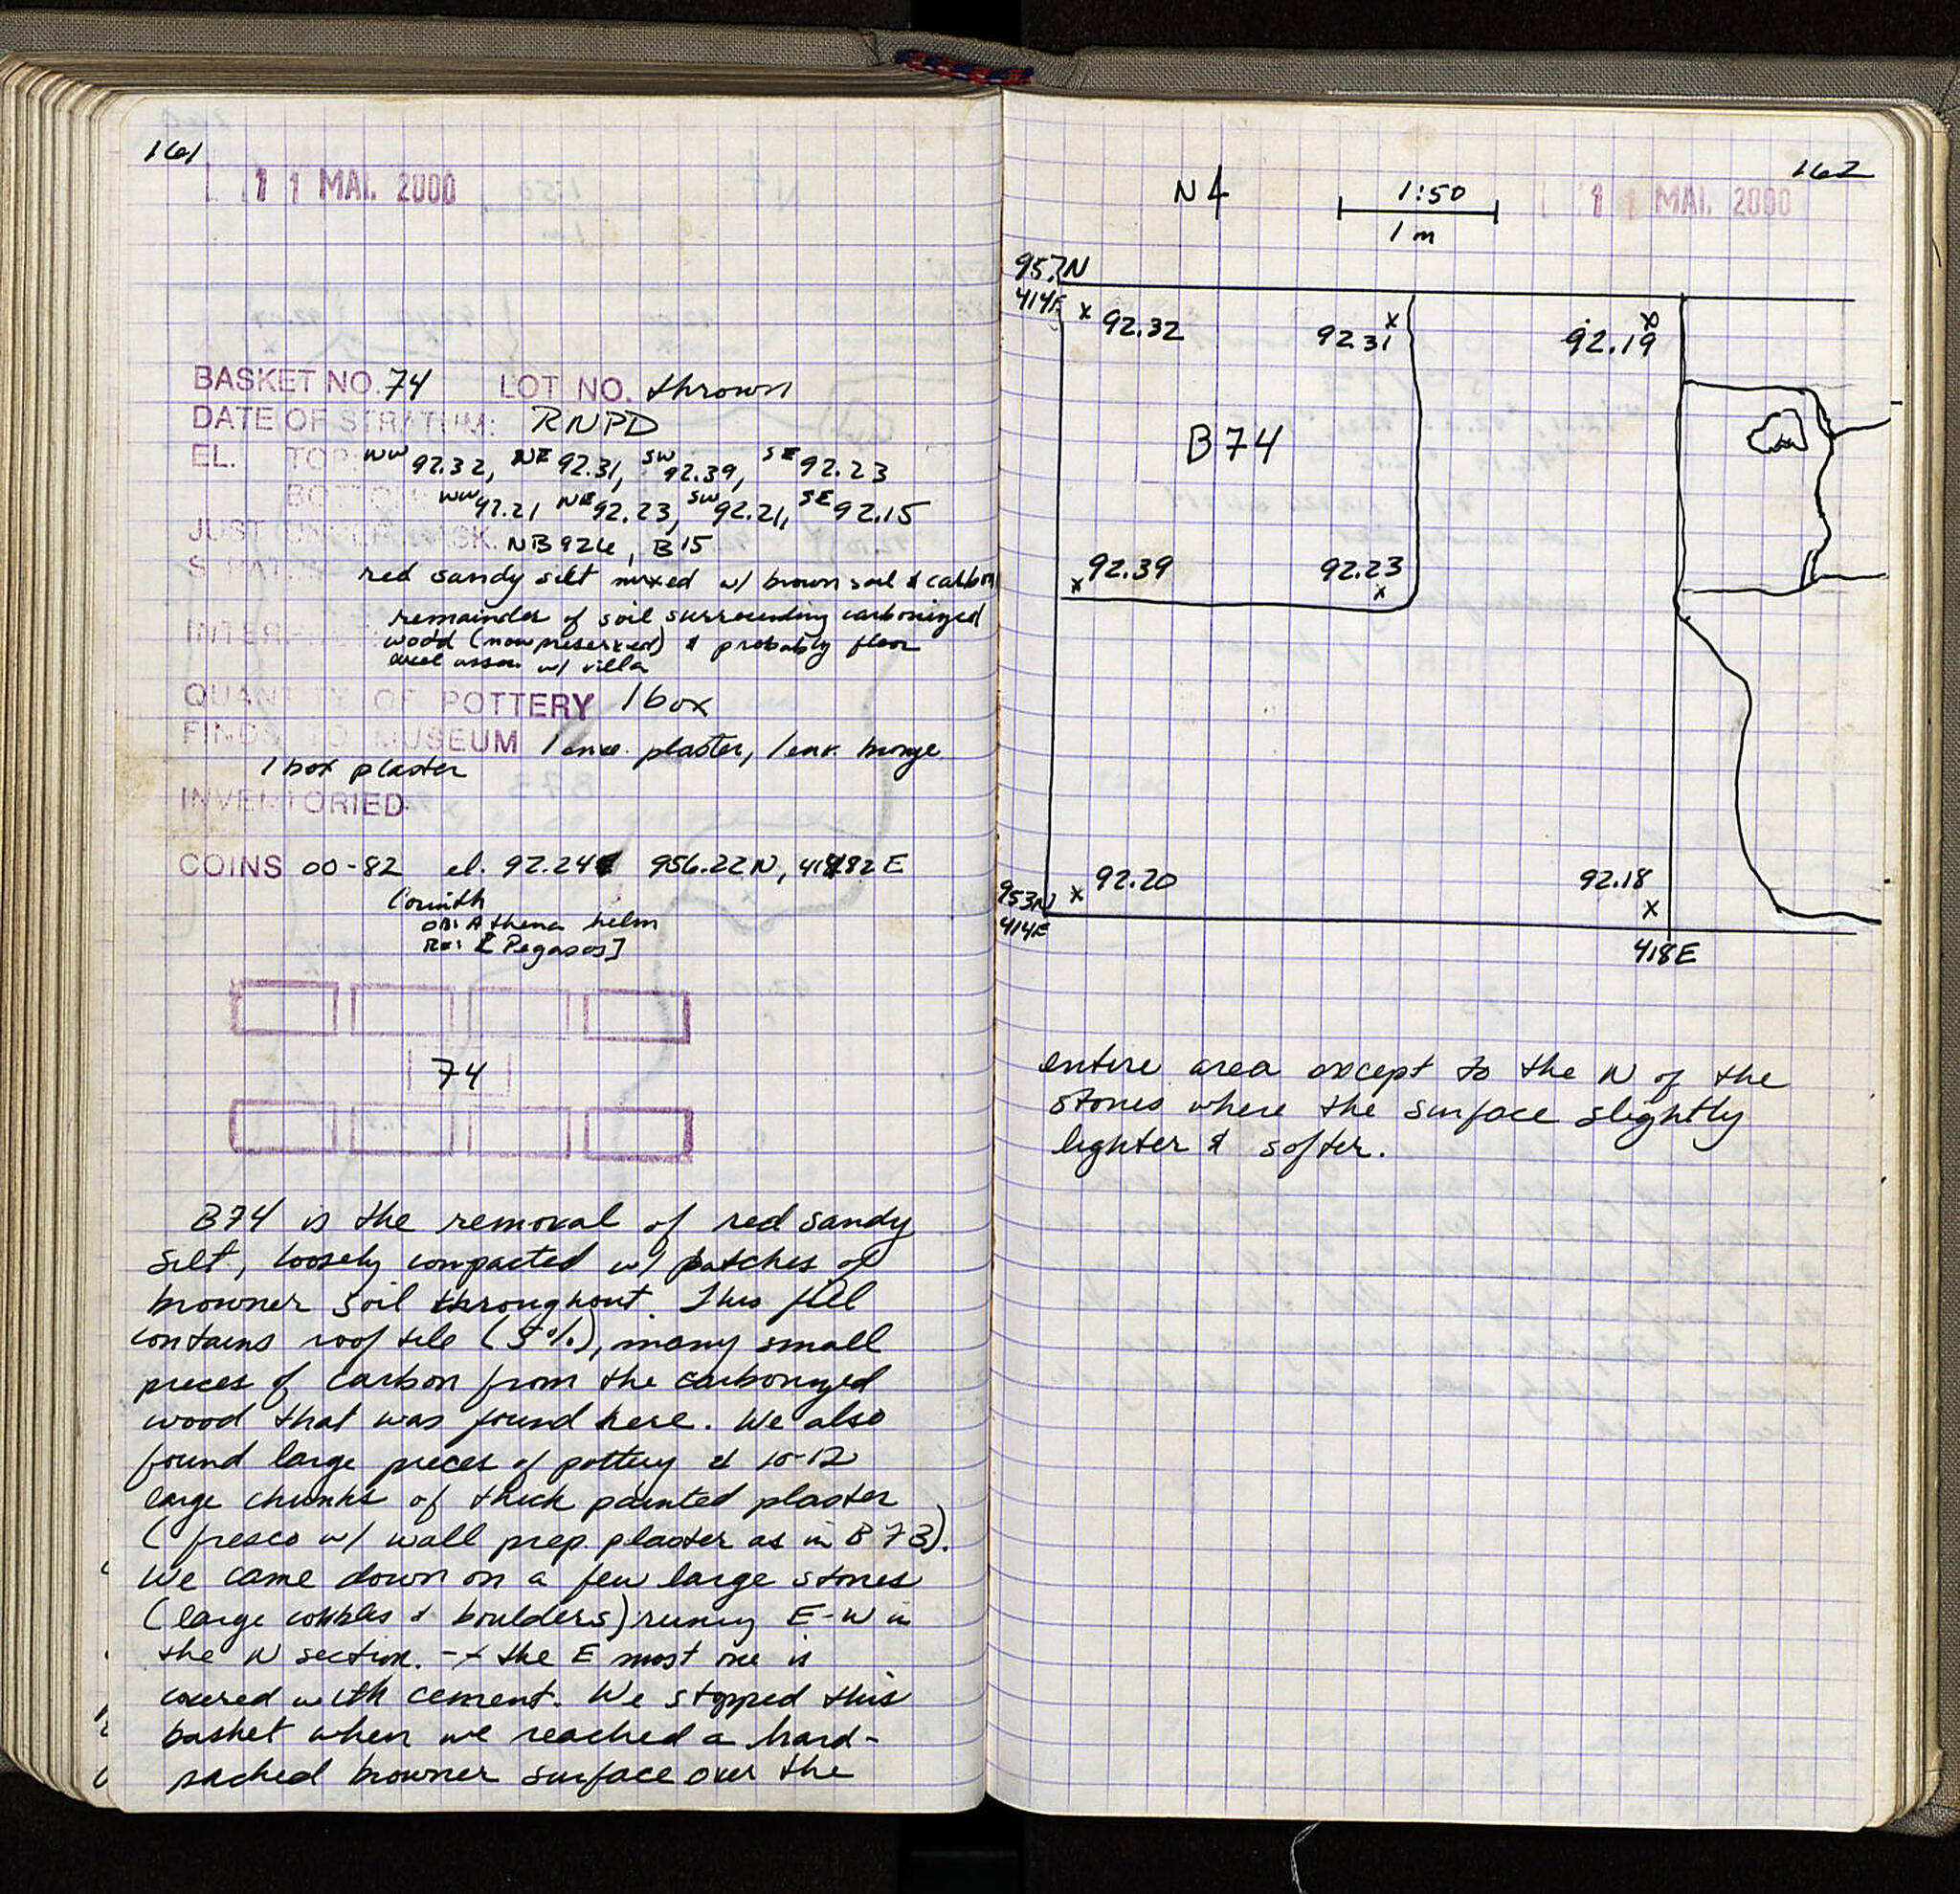 161
11 MAI. 2000
BASKET NO. 74 LOT NO. thrown
DATE OF STRATUM: RNPD
EL. TOP: NW 92.32, NE 92.31, SW 92.39, SE 92.23
BOTTOM NW 92.21 NE 92.23, SW 92.21, SE 92.15
JUST UNDER BASK. NB 926, B15
STRATUM red sandy silt mixed w/ brown soil & carbon
remainder of soil surrounding carbonized
wood (now preserved) & probably floor
assoc w/ villa
QUANTITY OF POTTERY 1 box
FINDS TO MUSEUM 1 env. plaster, 1 env. bronze
1 box plaster
INVENTORIED
COINS 00-82 el. 92.24 956.22N, E
Corinth
OB: Athena helm
Re: [Pegasos]
74
B74 is the removal of red sandy
silt, loosely compacted w/ patches of
browner soil throughout. This fill
contains roof tile (5%), many small
pieces of carbon from the carbonized
wood that was found here. We also
found large pieces of pottery & 10-12
large chunks of thick painted plaster
(fresco w/ wall prep. plaster as in B73).
We came down on a few large stones
(large cobbles & boulders) runing E-W in
the N section. the E most one is
covered with cement. We stopped this
basket when we reached a hard-
packed browner surface over the
162
11 MAI. 2000
N
1:50
1 m
957N
414E
92.32
92.31
92.19
B74
92.39
92.23
92.20
92.18
953N
414E
418E
entire area except to the N of the
stones where the surface slightly
lighter & softer.